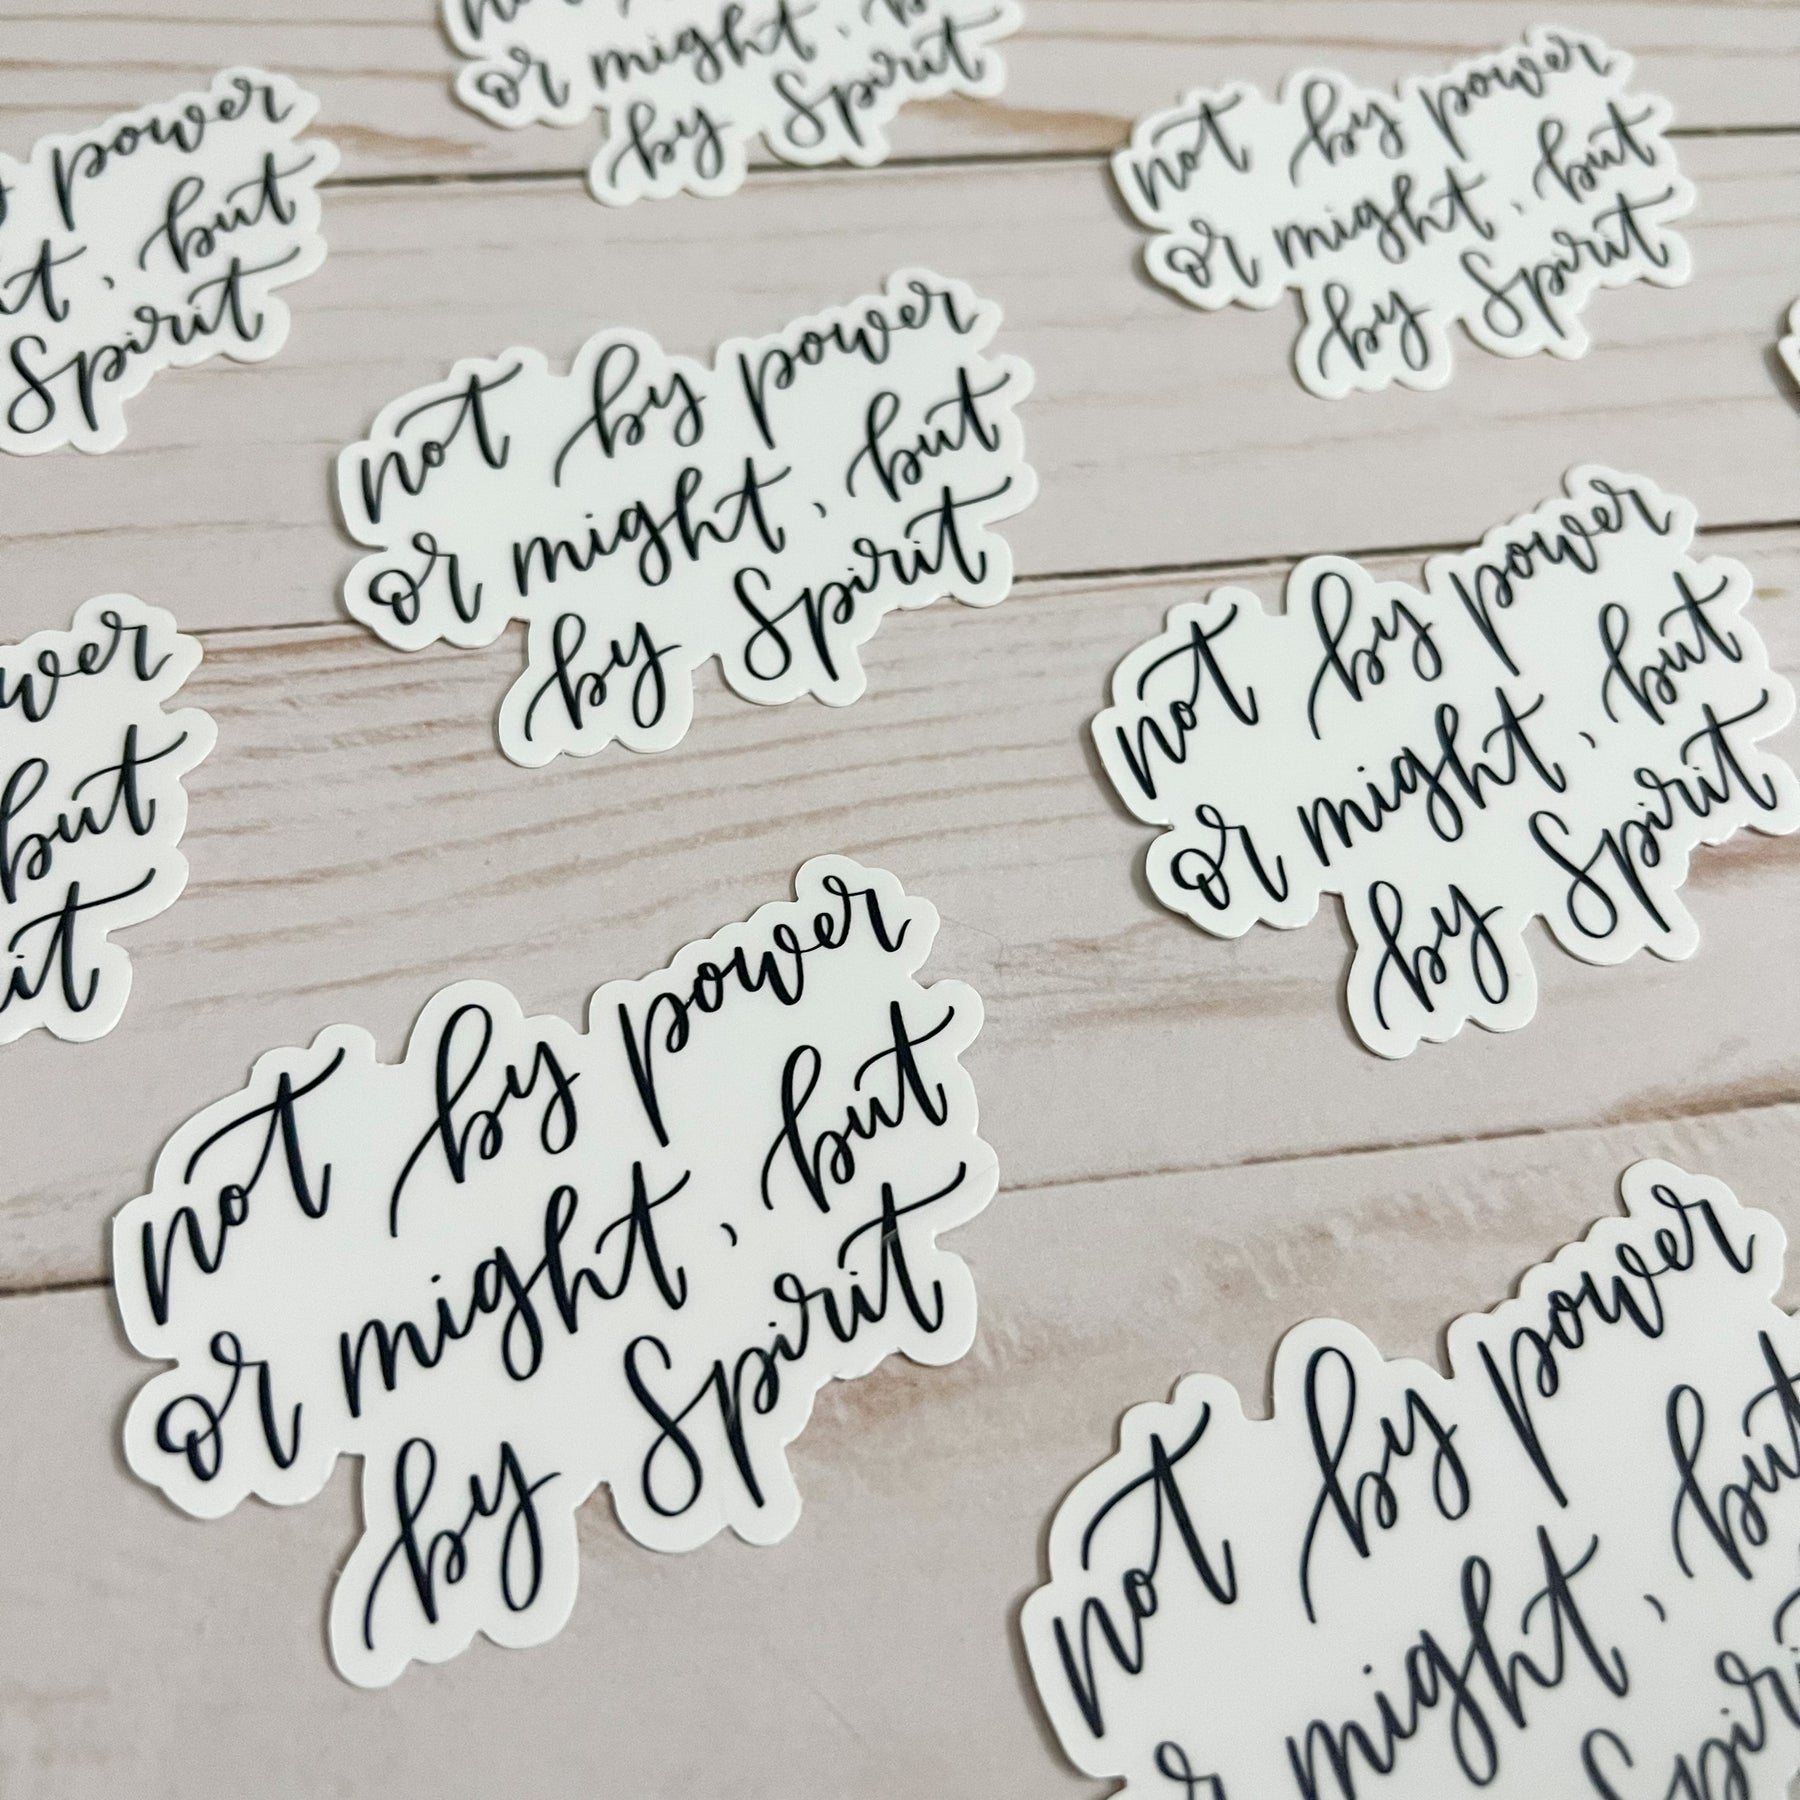 or might, b
by Spirit
power
but
Spirit
not by power
or might, but
by Spirit
not by power
or might, but
by Spirit
not by power
or might, but
by Spirit
but
not by power
or might, but
by Spirit
not by power
might, but